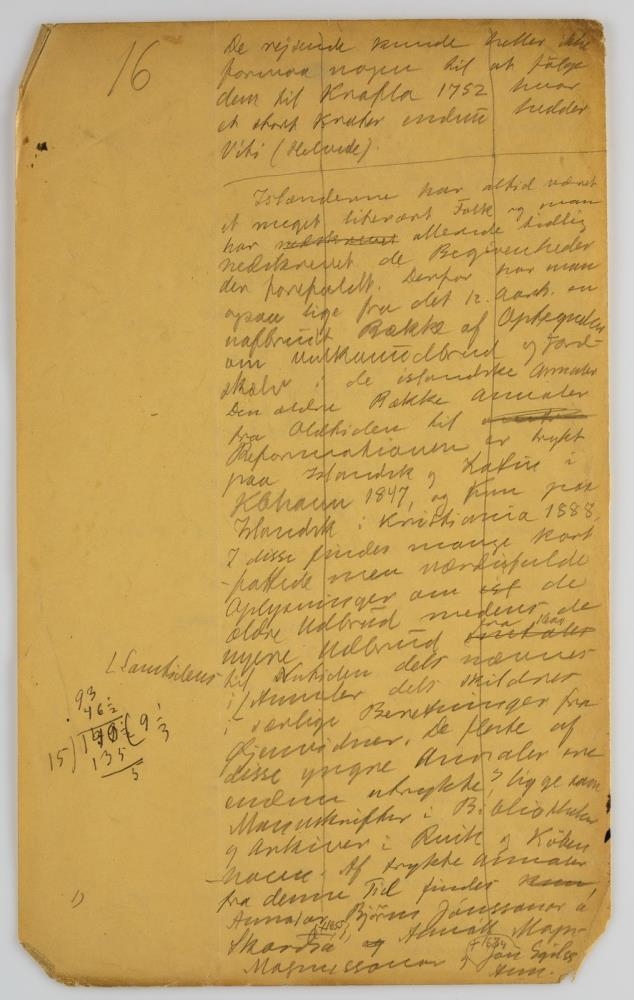 16
De rejsende kunde heller ikke
formaa nogen til at følge
dem til Krafla 1752 hvor
et stort Krater endnu hedder
Viti (Helvede).
Islænderne har altid været
et meget literært Folk og man
har nedskrevet allerede tidlig
nedskrevet de Begivenheder
der forefaldt. Derfor har man
ogsaa lige fra det 12. Aarh. en
uafbrudt Række af Optegnelser
om vulkanudbrud og Jord-
skælv i de islandske Annaler
Den ældre Række Annaler
fra Oldtiden til
Reformationen er trykt
paa Islandsk og Latin i
Kbhavn 1847, og kun paa
Islandsk i Kristiania 1888.
I disse findes mange kort
-fattede men værdifulde
Oplysninger om de
ældre Udbrud medens de
nyere Udbrud fra
til Nutiden dels nævnes
i Annaler dels skildres
L Samtidens
i særlige Beretninger fra
Øjenvidner. De fleste af
disse yngre Annaler ere
endnu utrykte, ligge som
Manuskrifter i Bibliotheker
og Arkiver i Rvik og Köben
havn. Af trykte Annaler
fra denne Tid findes kun
Annaler Björns Jónssonar á
Skardsá (†1655), og Annáll Magn-
Magnussonar og Jón Egilss
Ann.
93
46
15) 9 1/3
135
5
1)